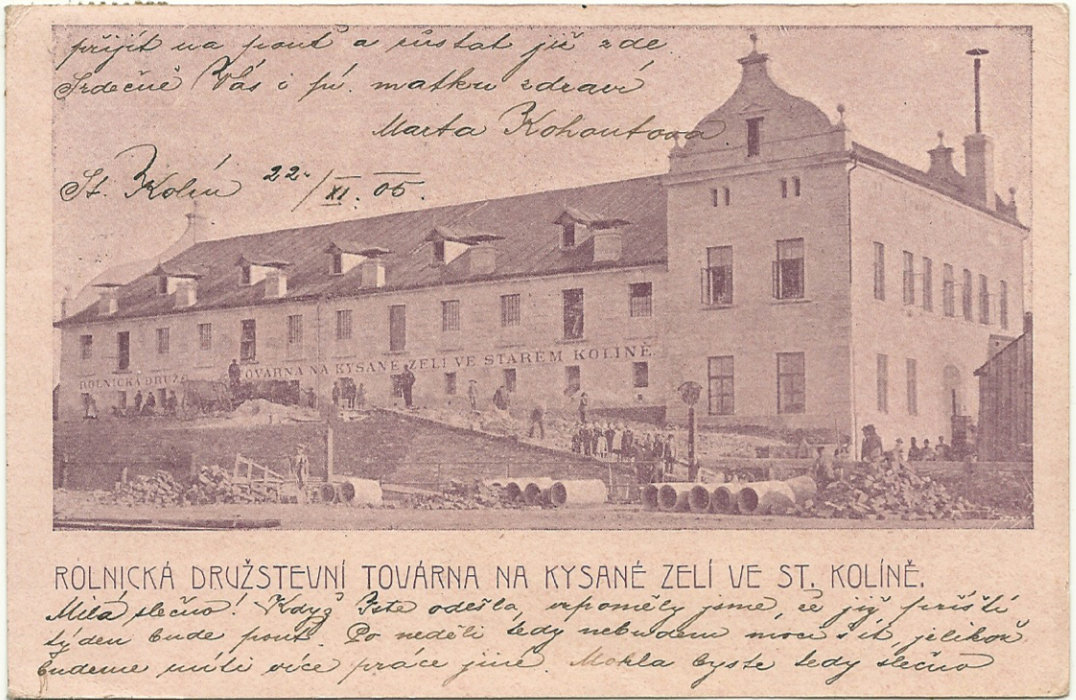 přijít na pouť a zůstat již zde
Srdečně Vás i pí. matku zdraví
Marta Kohoutova
St. Kolín 22./XI. 05.
ROLNICKÁ DRUŽS
OVÁRNA NA KYSANÉ ZELÍ VE STARÉM KOLÍNĚ
ROLNICKÁ DRUŽSTEVNÍ TOVÁRNA NA KYSANÉ ZELÍ VE ST. KOLÍNĚ.
Milá slečno! Když jste odešla, vspoměly jsme, že již příští
týden bude pouť. Po neděli tedy nebudem moci šít, jelikož
budeme míti více práce jiné. Mohla byste tedy slečno